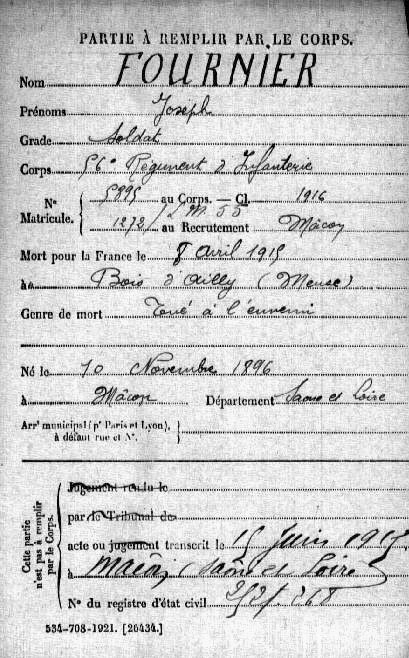 PARTIE À REMPLIR PAR LE CORPS.
Nom FOURNIER
Prénoms Joseph
Grade Soldat
Corps 56e Régiment d'Infanterie
N° Matricule. { 5995 au Corps. — Cl. 1916
1272 / au Recrutement Mâcon
Mort pour la France le 8 avril 1915
à Bois d'Ailly (Meuse)
Genre de mort Tué à l'ennemi
Né le 10 Novembre 1896
à Mâcon Département Saone et Loire
Arrt municipal (pr Paris et Lyon), à défaut rue et N°.
Cette partie n'est pas à remplir par le Corps.
Jugement rendu le
par le Tribunal de
acte ou jugement transcrit le 15 Juin 1915
à Macon (Saône et Loire
N° du registre d'état civil
534-708-1921. [26434.]